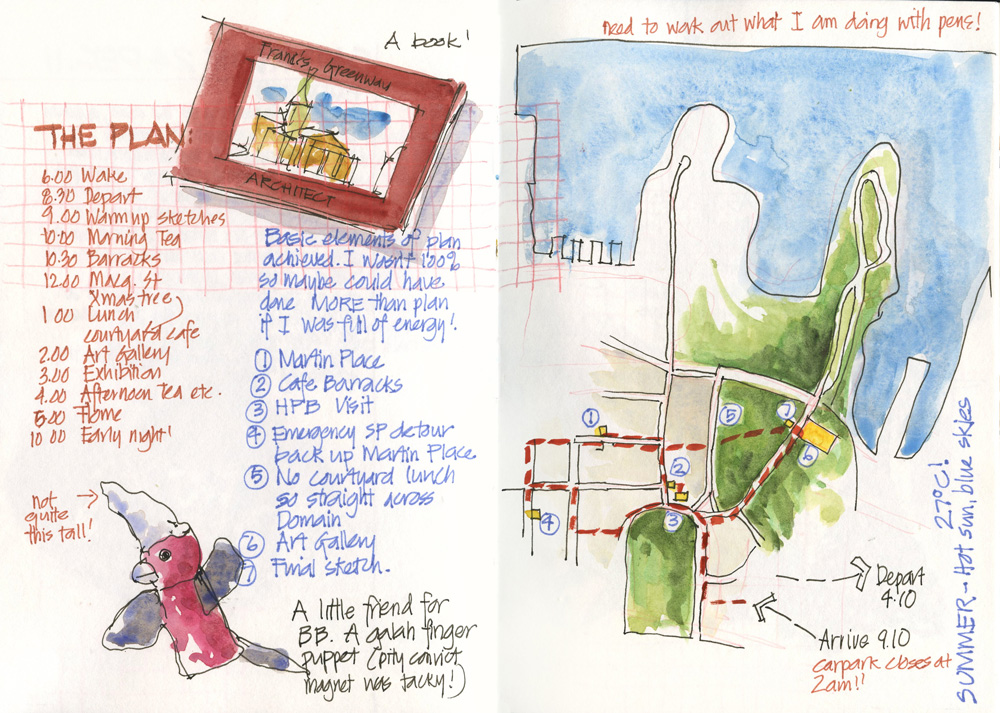 A book!
Francis Greenway
ARCHITECT
THE PLAN:
6.00 Wake
8.30 Depart
9.00 Warmup sketches
10.00 Morning Tea
10.30 Barracks
12.00 Macq. St
Xmas tree
1.00 Lunch
courtyard cafe
2.00 Art Gallery
3.00 Exhibition
4.00 Afternoon Tea etc.
5.00 Home
10.00 Early night!
Basic elements of plan
achieved. I wasn't 100%
so maybe could have
done MORE than plan
if I was full of energy!
① Martin Place
② Cafe Barracks
③ HPB Visit
④ Emergency SP detour
back up Martin Place
⑤ No courtyard lunch
so straight across
Domain
⑥ Art Gallery
⑦ Final sketch.
not
quite
this tall!
A little friend for
BB. A galah finger
puppet (pity convict
magnet was tacky!)
need to work out what I am doing with pens!
①
⑤
⑦
⑥
②
④
③
Depart
4.10
Arrive 9.10
carpark closes at
2am!!
SUMMER → Hot sun, blue skies
27°C!